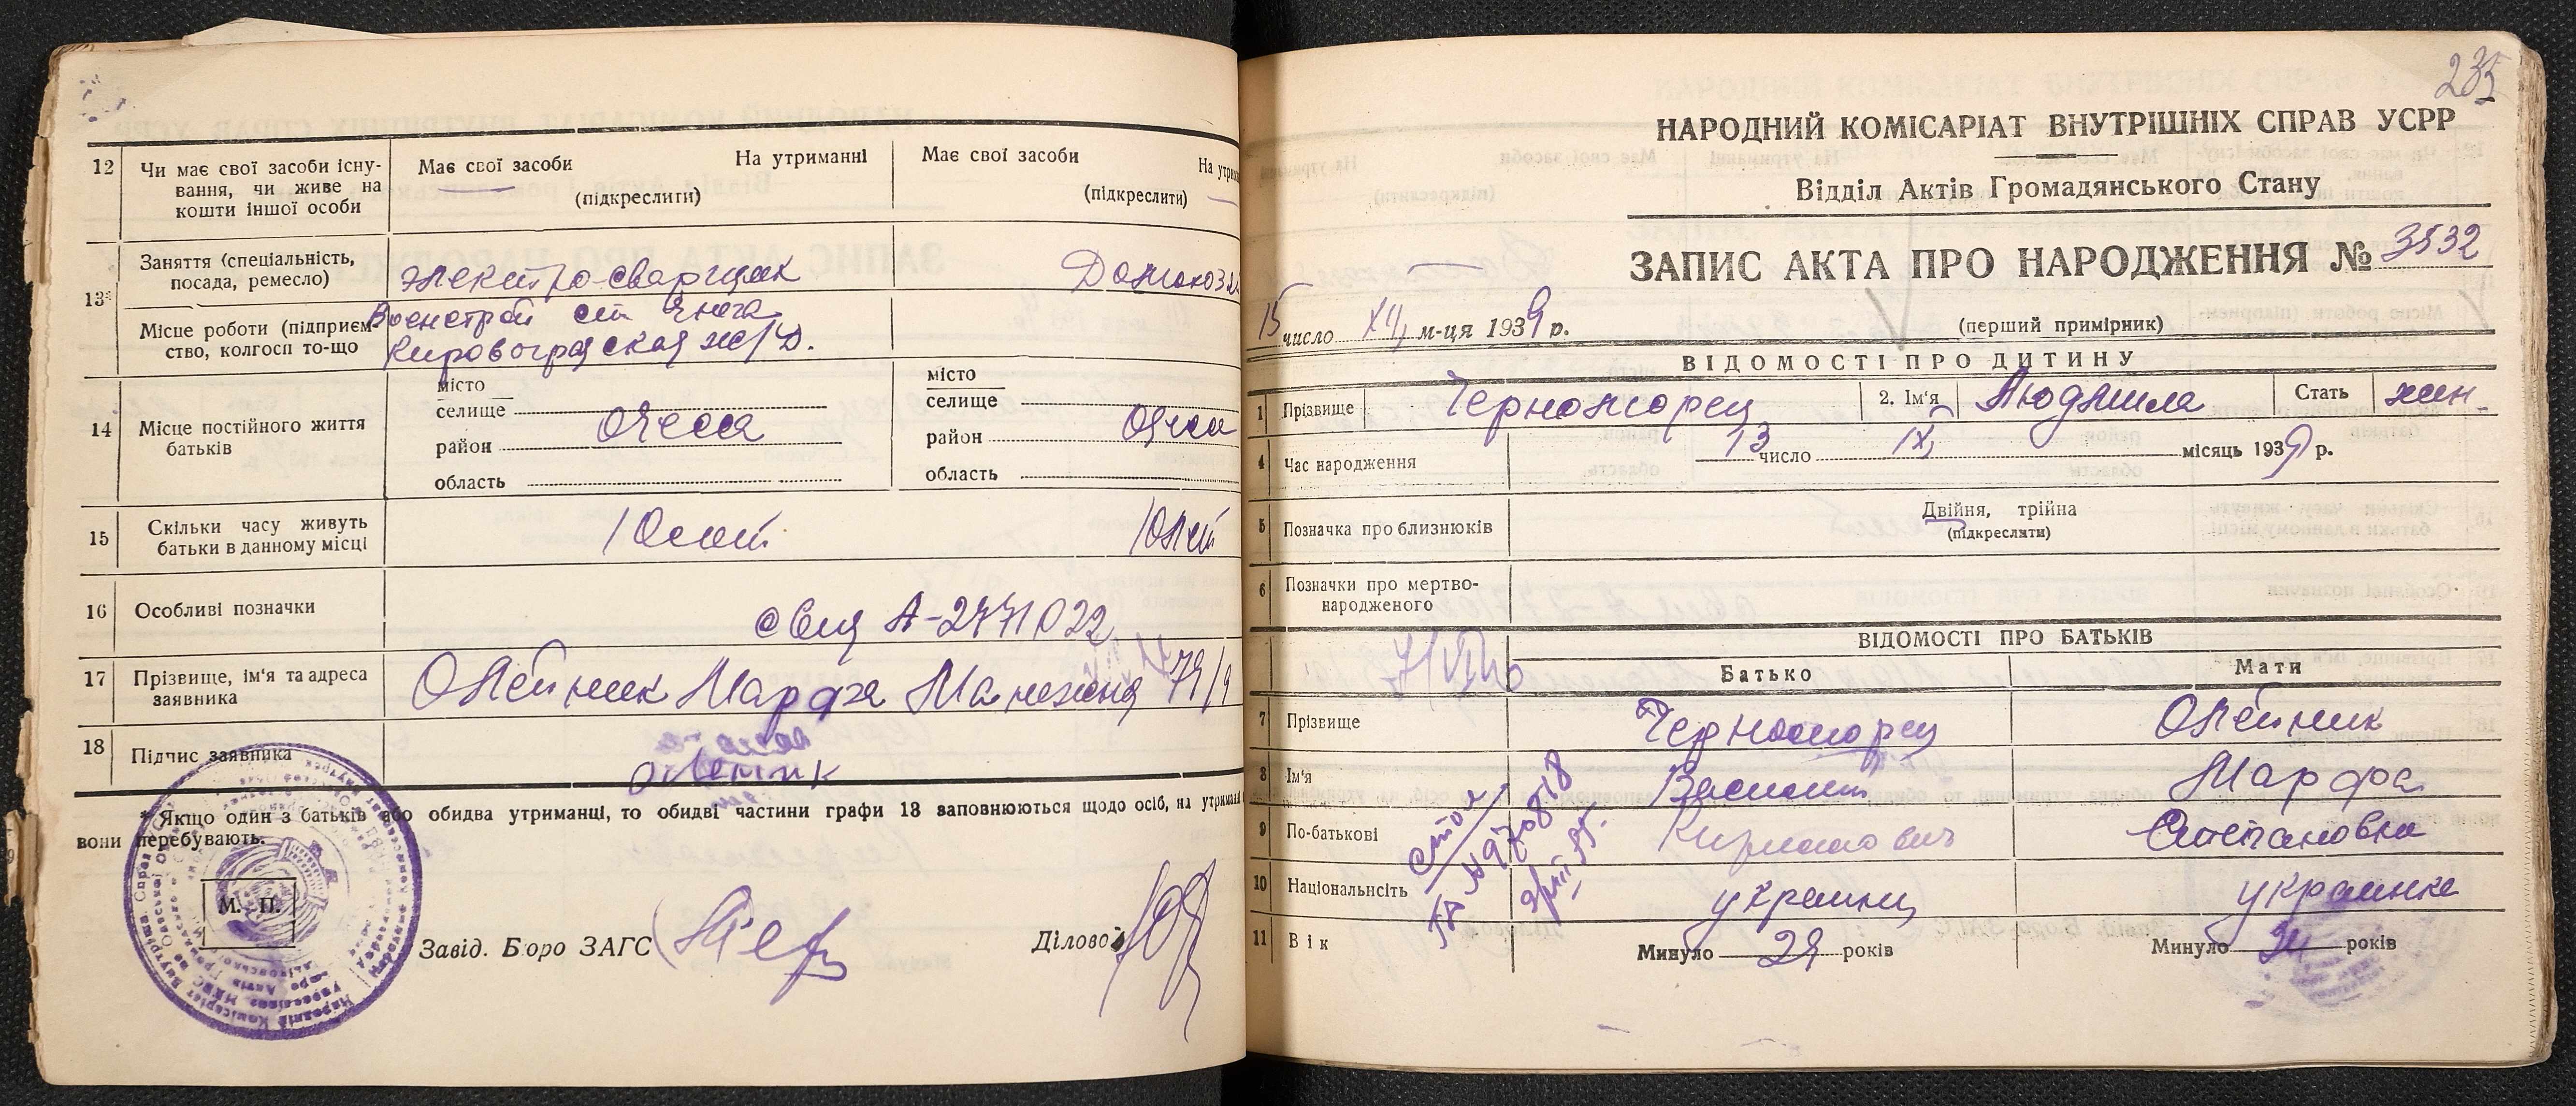 12 Чи має свої засоби існу-
вання, чи живе на
кошти іншої особи
Має свої засоби На утриманні
(підкреслити)
Має свої засоби
(підкреслити)
13* Заняття (спеціальність,
посада, ремесло)
электро-сварщик
Місце роботи (підприєм-
ство, колгосп то-що
Военстрой ст
Кировоградская ж/д.
14 Місце постійного життя
батьків
місто
селище
район Одесса
область
місто
селище
район Одесса
область
15 Скільки часу живуть
батьки в данному місці
10 лет 10 лет
16 Особливі позначки
свид А-2771022
17 Прізвище, ім'я та адреса
заявника
Олейник Марфа
18 Підпис заявника
Олейник
* Якщо один з батьків або обидва утриманці, то обидві частини графи 13 заповнюються щодо осіб, на
вони перебувають.
М. П.
Завід. Бюро ЗАГС
Діловод
235
НАРОДНИЙ КОМІСАРІАТ ВНУТРІШНІХ СПРАВ УСРР
Відділ Актів Громадянського Стану
ЗАПИС АКТА ПРО НАРОДЖЕННЯ № 3532
15 число м-ця 1939 р.
(перший примірник)
ВІДОМОСТІ ПРО ДИТИНУ
1 Прізвище Черноморец 2. Ім'я Людмила Стать жен.
4 Час народження 13 число місяць 1939 р.
5 Позначка про близнюків
Двійня, трійна
(підкреслити)
6 Позначки про мертво-
народженого
ВІДОМОСТІ ПРО БАТЬКІВ
Батько Мати
7 Прізвище Черноморец Олейник
8 Ім'я Василий Марфа
9 По-батькові Кириллович Степановна
10 Національність украинец украинка
11 Вік Минуло 29 років Минуло років